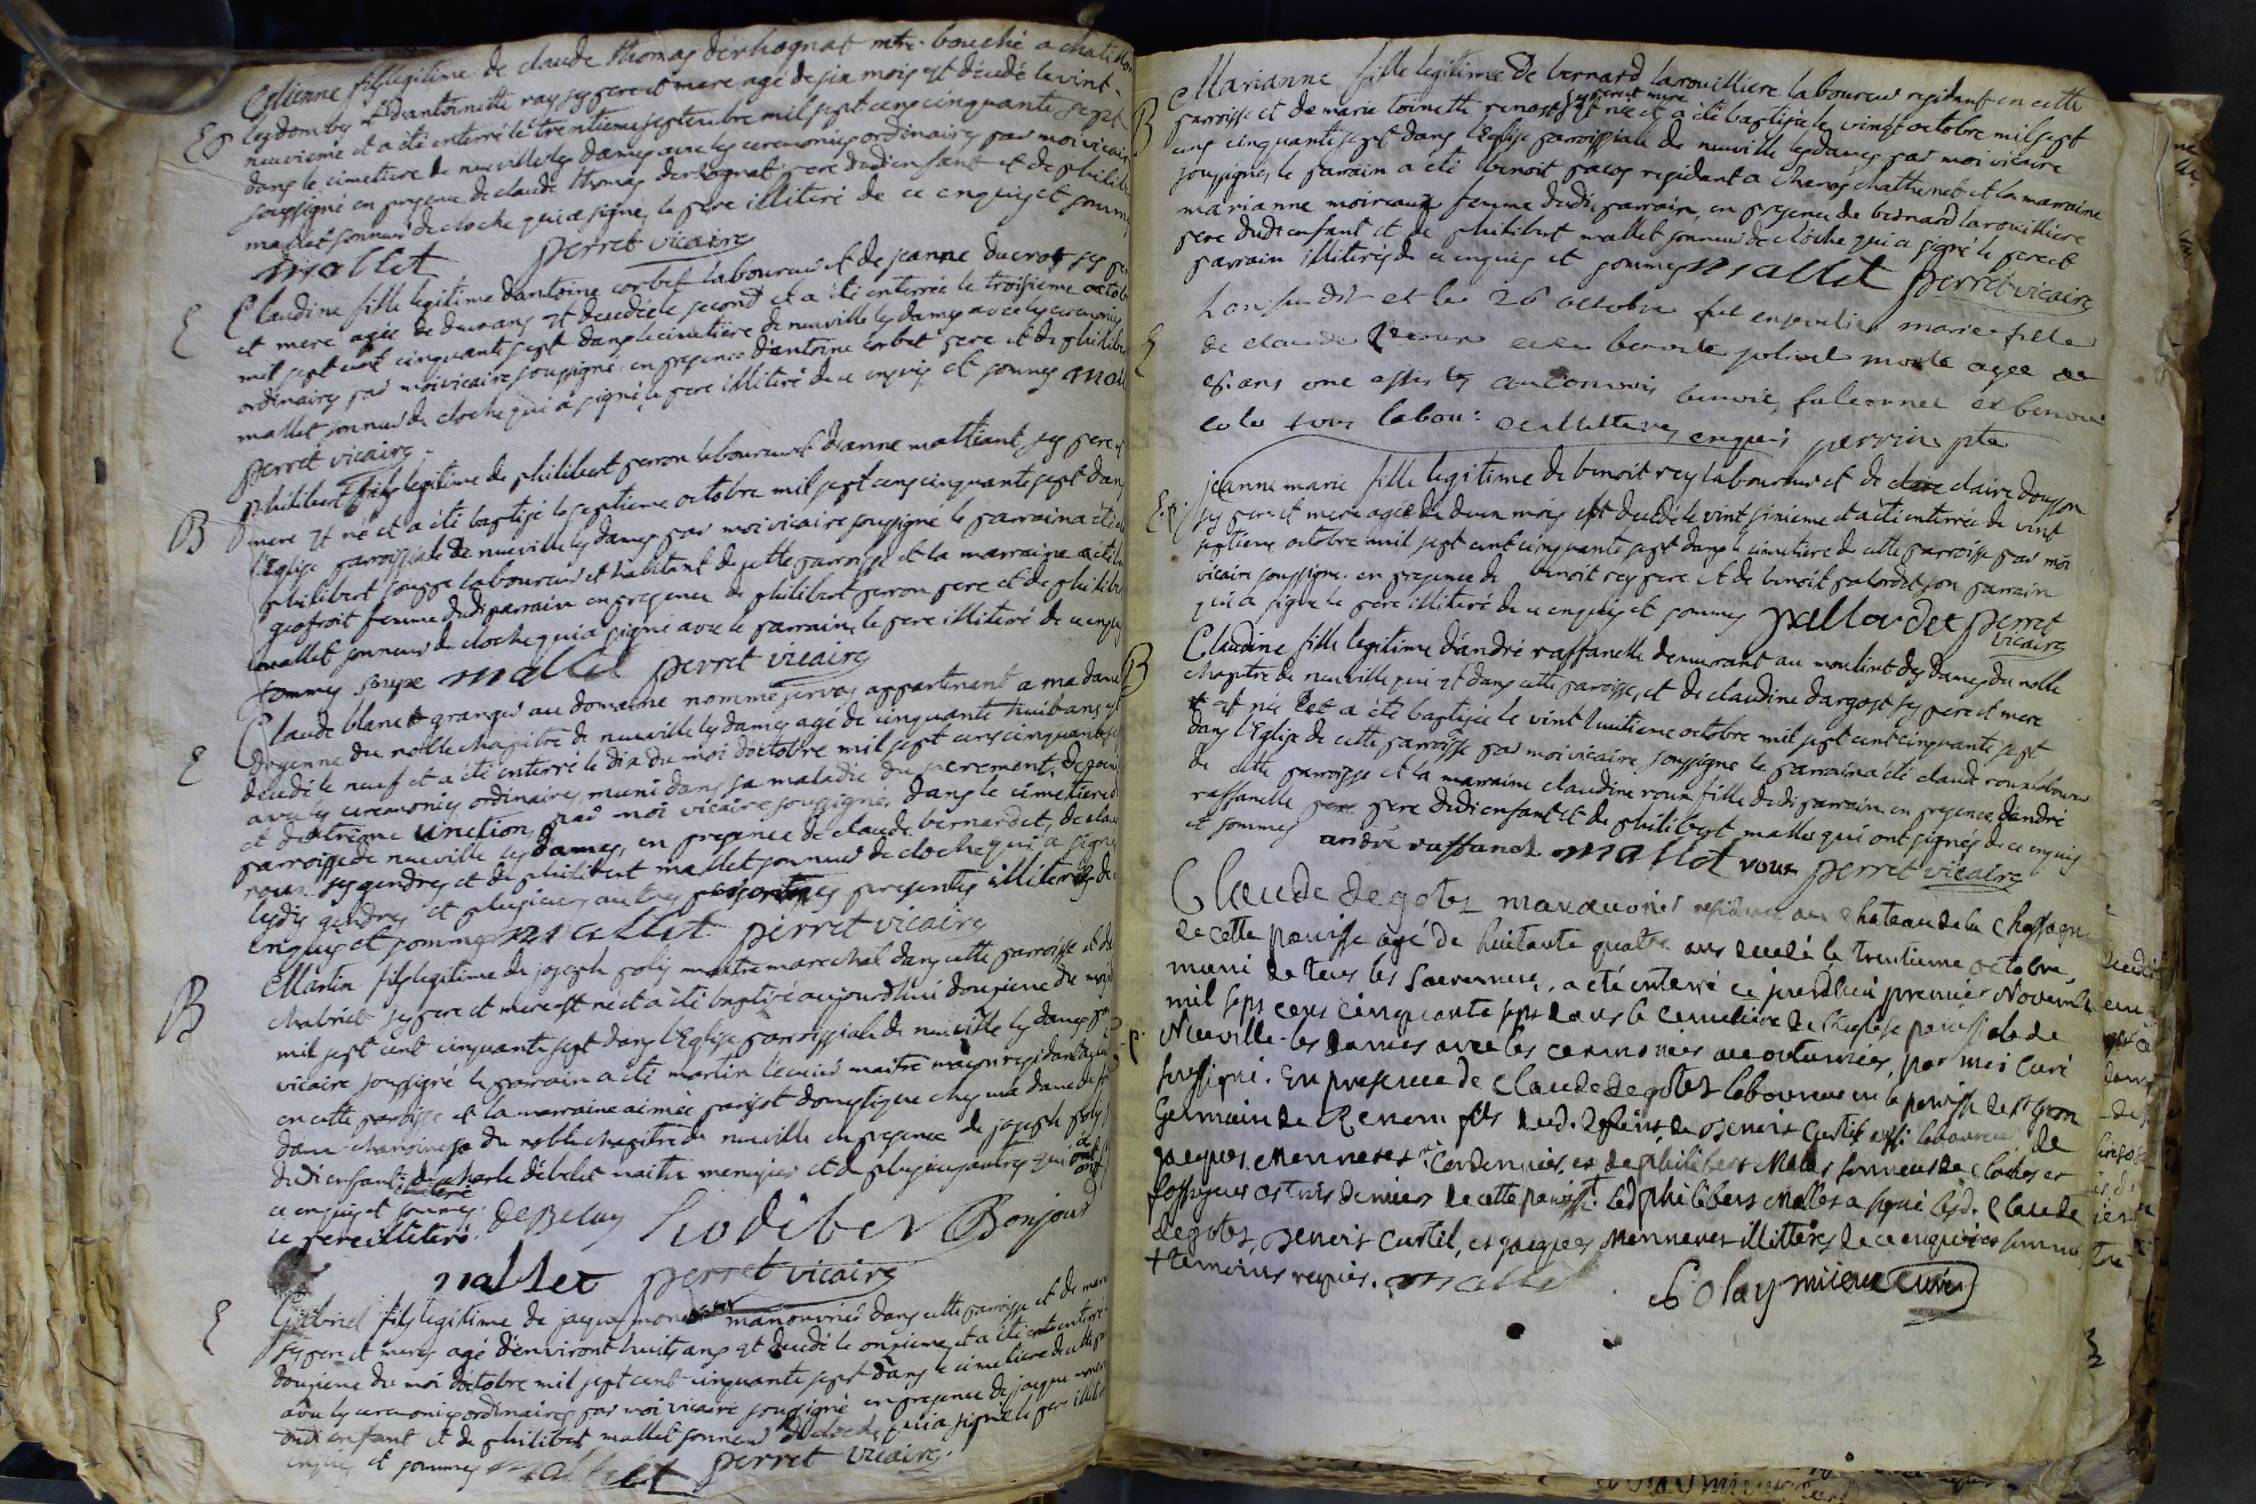 Etienne fils legitime de claude thomas derhognat mtre bouché a chatillon
les dombes et d'antoinette ray ses pere et mere agé de six mois est decedé le vint
neuvieme et a été enterré le trentieme septembre mil sept cens cinquante sept
Es
dans le cimetiere de neuville les dames avec les ceremonies ordinaires par moi vicaire
soussigné en presence de claude thomas derhognat pere dudi enfant et de philibert
mallet sonneur de cloche qui a signé, le pere illiteré de ce enquis et sommé
mallet perret vicaire
Claudine fille legitime d'antoine corbet laboureur et de jeanne ducrot ses pere
et mere agée de deux ans est decedée le second et a été enterrée le troisieme octobre
E
mil sept cent cinquante sept dans le cimetiere de neuville les dames avec les ceremonies
ordinaires par moi vicaire soussigné en presence d'antoine corbet pere et de philibert
mallet sonneur de cloche qui a signé, le pere illiteré de ce enquis et sommé mallet
perret vicaire
philibert fils legitime de philibert peron laboureur et d'anne mattiant ses pere et
mere est né et a été baptisé le septieme octobre mil sept cens cinquante sept dans
B
l'Eglise parroissiale de neuville les dames par moi vicaire soussigné le parrain a été
philibert soupe laboureur et habitant de cette parroisse et la marraine a été
geofroit femme dudi parrain en presence de philibert peron pere et de philibert
mallet sonneur de cloche qui a signé avec le parrain, le pere illiteré de ce enquis
sommé soupe mallet perret vicaire
Claude blanc granger au domaine nommé servas appartenant a madame
doyenne du noble chapitre de neuville les dames agé de cinquante huit ans est
E
decedé le neuf et a été enterré le dix du moi d'octobre mil sept cens cinquante sept
avec les ceremonies ordinaires, muni dans sa maladie du sacrement de
et d'extrême unction, par moi vicaire soussigné, dans le cimetiere de
parroisse de neuville les dames, en presence de claude bernardet, de claude
roux ses gendres et de philibert mallet sonneur de cloche qui a signé
lesdis gendres et plusieurs autres presents illiterés de
enquis et sommés mallet perret vicaire
Martin fils legitime de joseph poly maitre marechal dans cette parroisse et de
chabriet ses pere et mere est né et a été baptisé aujourd'hui douzieme du mois
B
mil sept cent cinquante sept dans l'Eglise parroissiale de neuville les dames par
vicaire soussigné le parrain a été martin l'ecuier maitre maçon residant
en cette parroisse et la marraine aimée parisot domestique chez madame de
dame chanoinesse du noble chapitre de neuville en presence de joseph poly
dudi enfant, de charle débelet maitre menusier et de plusieurs autres qui ont
ce enquis et sommés
le pere illiteré. deBelay Bonjour
mallet perret vicaire
Gabriel fils legitime de jacque manouvrier dans cette parroisse et de
E
ses pere et mere, agé d'environt huit ans est decedé le onzieme et a été enterré
douzieme du moi d'octobre mil sept cent cinquante sept dans le cimetiere de cette
avec les ceremonies ordinaires par moi vicaire soussigné en presence de jacque
dudi enfant et de philibert mallet sonneur de cloche, qui a signé le pere illiteré
enquis et sommé mallet perret vicaire.
Marianne fille legitime de bernard larouilliere laboureur residant en cette
B
parroisse et de marie toinette ses pere et mere est née et a été baptisée le vingt octobre mil sept
cens cinquante sept dans l'Eglise parroissiale de neuville les dames par moi vicaire
soussigné, le parrain a été benoit pacos residant a chanos chattenet et la marraine
marianne moireaux femme dudi parrain, en presence de bernard larouilliere
pere dudi enfant et de philibert mallet sonneur de cloche qui a signé le pere et
parrain illiterés de ce enquis et sommés mallet perret vicaire
L'an susdit et le 26 octobre fut ensevelie marie fille
de claude et de benoite morte agee de
E
ans one assistés au convoi benoit falconnet et benoit
tous labou: illitteres enquis perrin ptre
jeanne marie fille legitime de benoit rey laboureur et de claire dousson
ses pere et mere agée de deux mois est decedée le vint sixieme et a été enterrée de vint
septieme octobre mil sept cent cinquante sept dans le cimetiere de cette parroisse par moi
vicaire soussigné en presence de benoit rey pere et de benoit palordet son parrain
qui a signé le pere illiteré de ce enquis et sommé pallordet perret
vicaire
Claudine fille legitime d'andré raffanelle demeurant au moulint des dames du noble
B
chapitre de neuville qui est dans cette paroisse, et de claudine dargost ses pere et mere
est née et a été baptisée le vint huitieme octobre mil sept cent cinquante sept
dans l'Eglise de cette parroisse par moi vicaire soussigné le parrain a été claude roux laboureur
de cette parroisse et la marraine claudine roux fille dudi parrain en presence d'andré
raffanelle pere dudi enfant et de philibert mallet qui ont signés de ce enquis
et sommés andré raffanel mallet roux perret vicaire
Claude degotet manouvrier residant au chateau de la Chassagne
de cette paroisse agé de huitante quatre ans decedé le trentieme octobre,
muni de tous les sacremens, a été enterré ce jourd'hui premier Novembre
mil sept cens cinquante sept dans le cimetiere de l'Eglise paroissiale de
Neuville-les dames avec les ceremonies accoutumées, par moi Curé
soussigné. En presence de Claude degotet laboureur en la paroisse de st
Germain de Renom fils dud. defunt, de Benoit Curtil aussi laboureur de
jacques Monneret Cordonnier, et de philibert Mallet sonneur de cloches et
fossoyeur os trois derniers de cette paroisse. Led philibert Mallet a signé lesd. Claude
degotet, Benoit Curtil, et jacques Monneret illitterés de ce enquis et sommés
temoins requis. mallet Colaymieux Curé